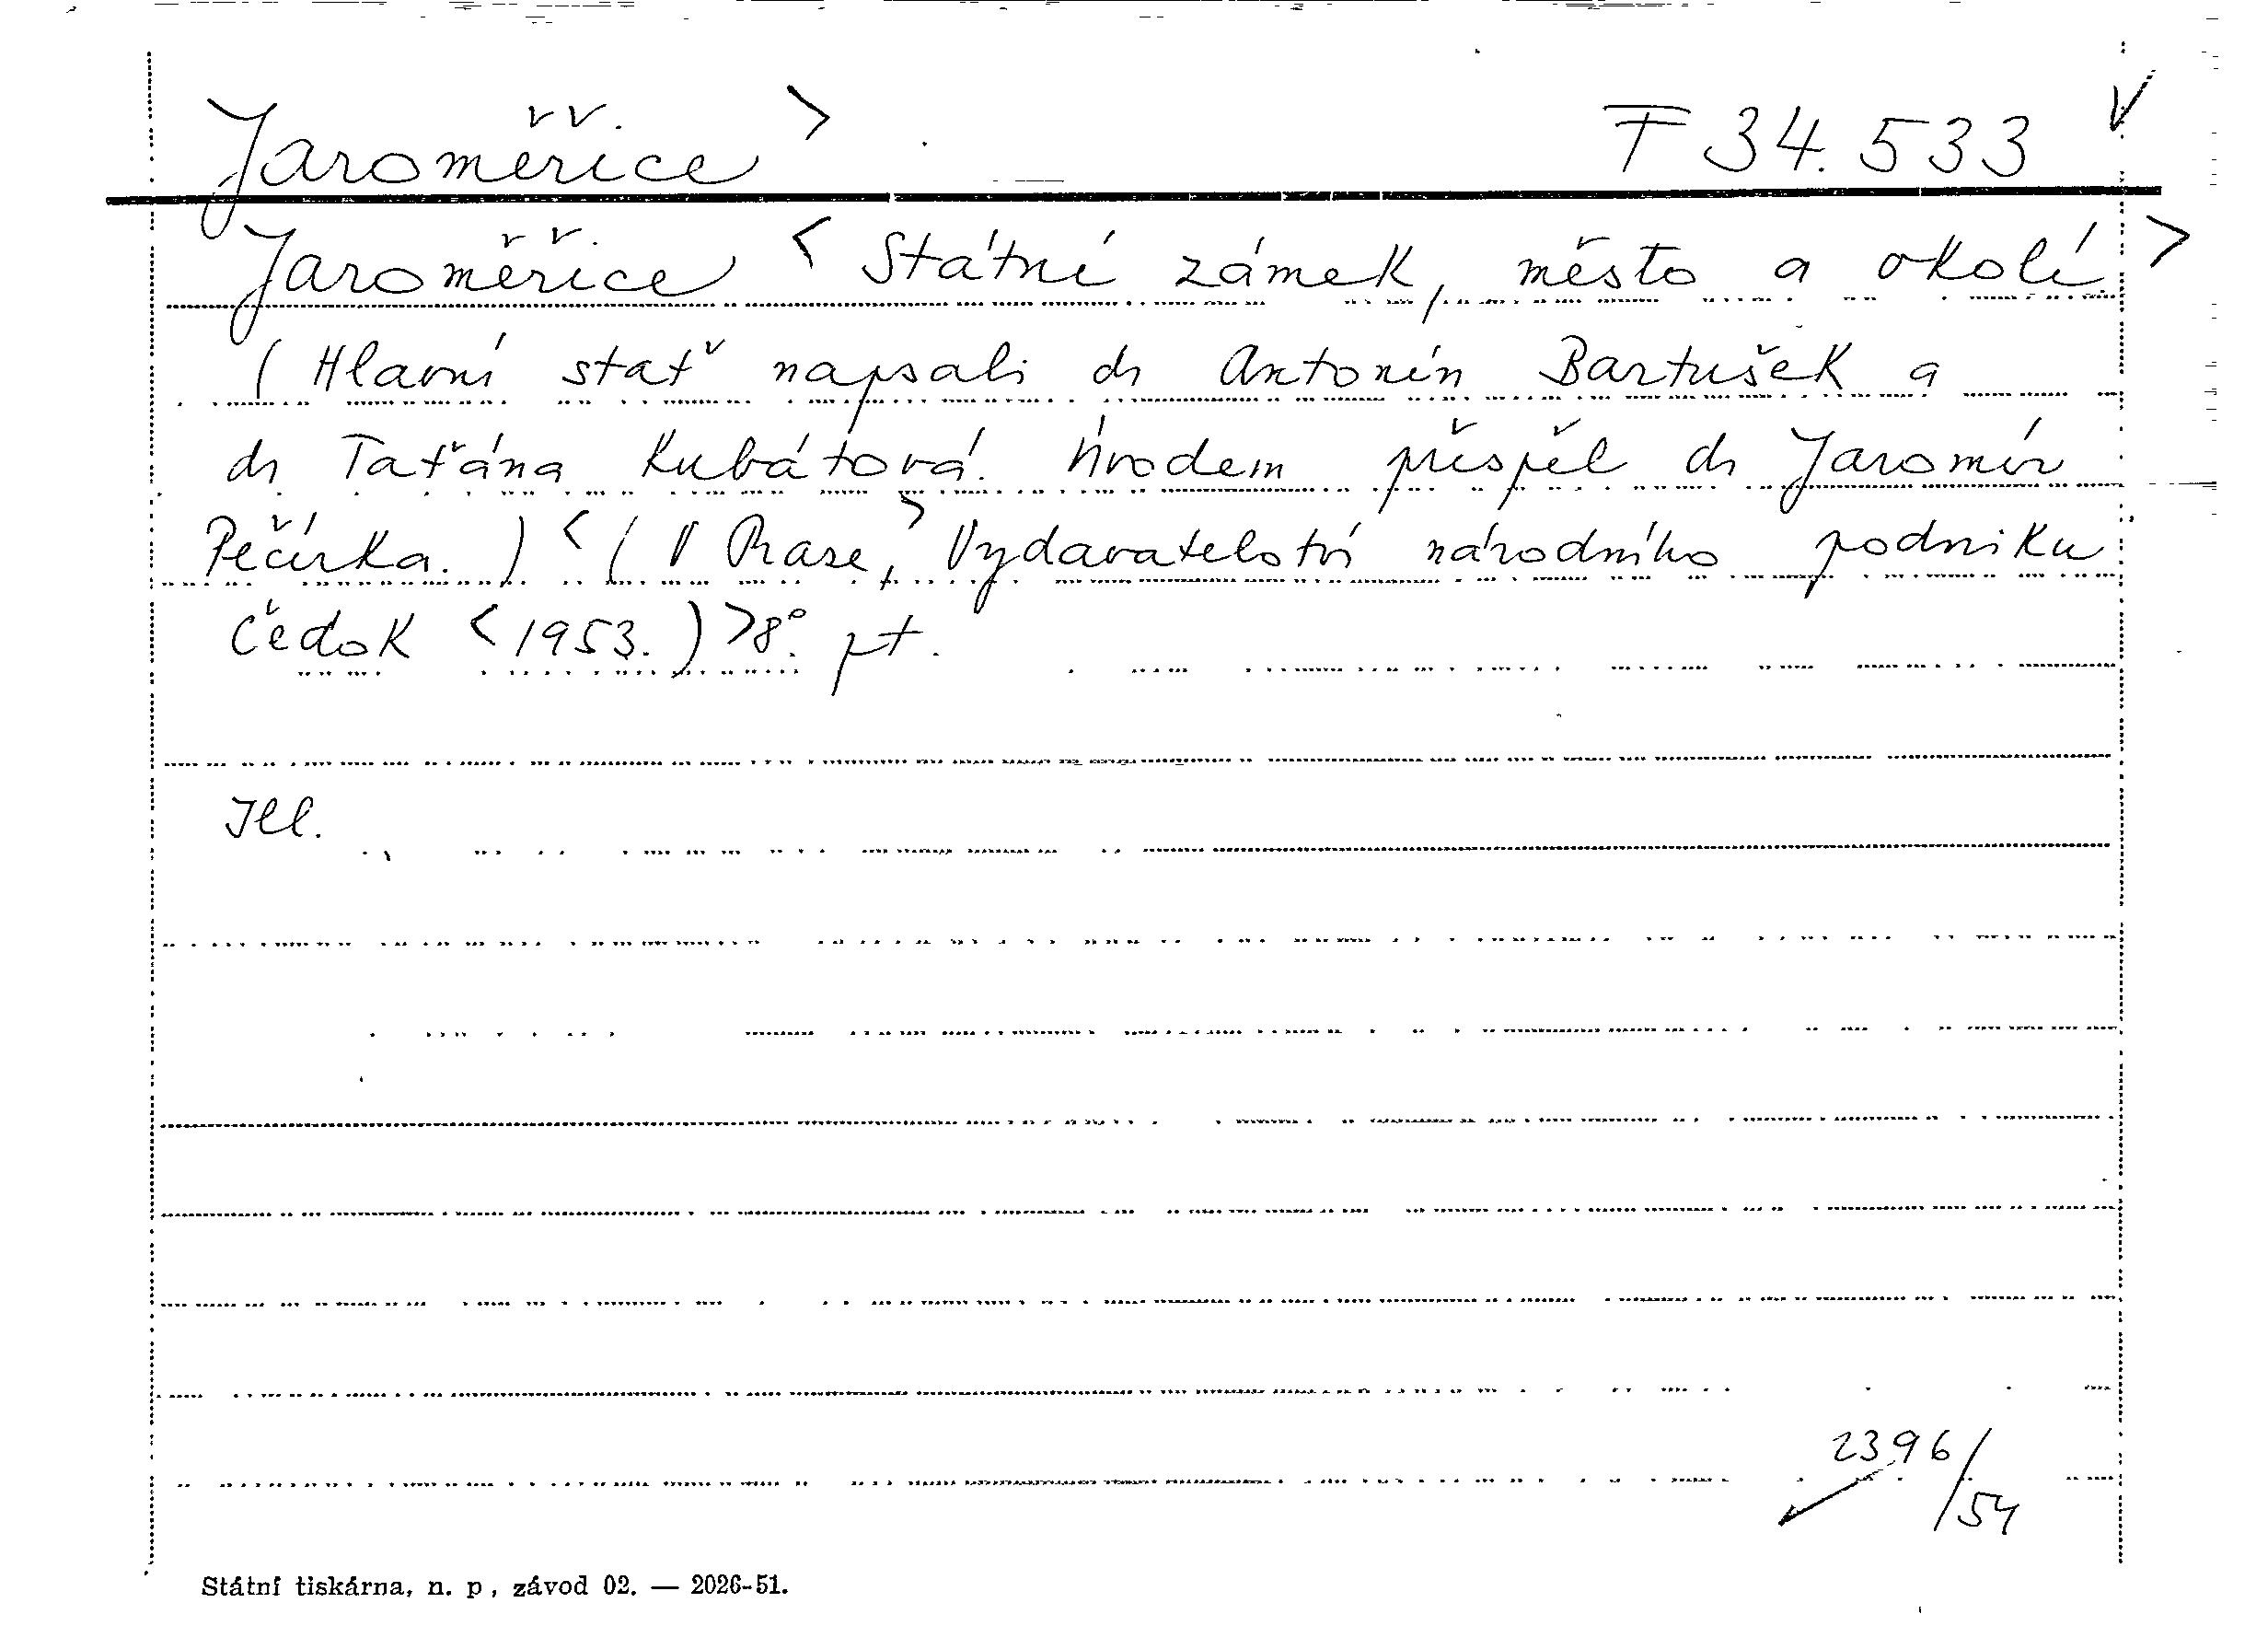 Jaroměřice > F 34.533
Jaroměřice < Státní zámek, město a okolí. >
(Hlavní stať napsali dr Antonín Bartušek a
dr Taťána Kubátová. Úvodem přispěl dr Jaromír
Pečírka.) < (V Praze, > Vydavatelství národního podniku
Čedok < 1953.) > 8°. pt.
Ill.
2396/
/54
Státní tiskárna, n. p., závod 02. — 2026-51.